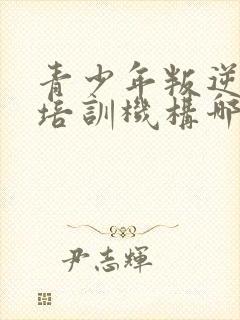 青少年叛逆
培訓機構哪
尹志輝